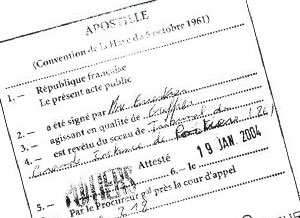 APOSTILLE
(Convention de La Haye du 5 octobre 1961)
1. — République française
Le présent acte public
2. — a été signé par Mme
3. — agissant en qualité de Greffier
4. — est revêtu du sceau de Tribunal de
Instance de (86)
Attesté
5. — POITIERS 6. — le 19 JAN. 2004
Par le Procureur gal près la cour d'appel